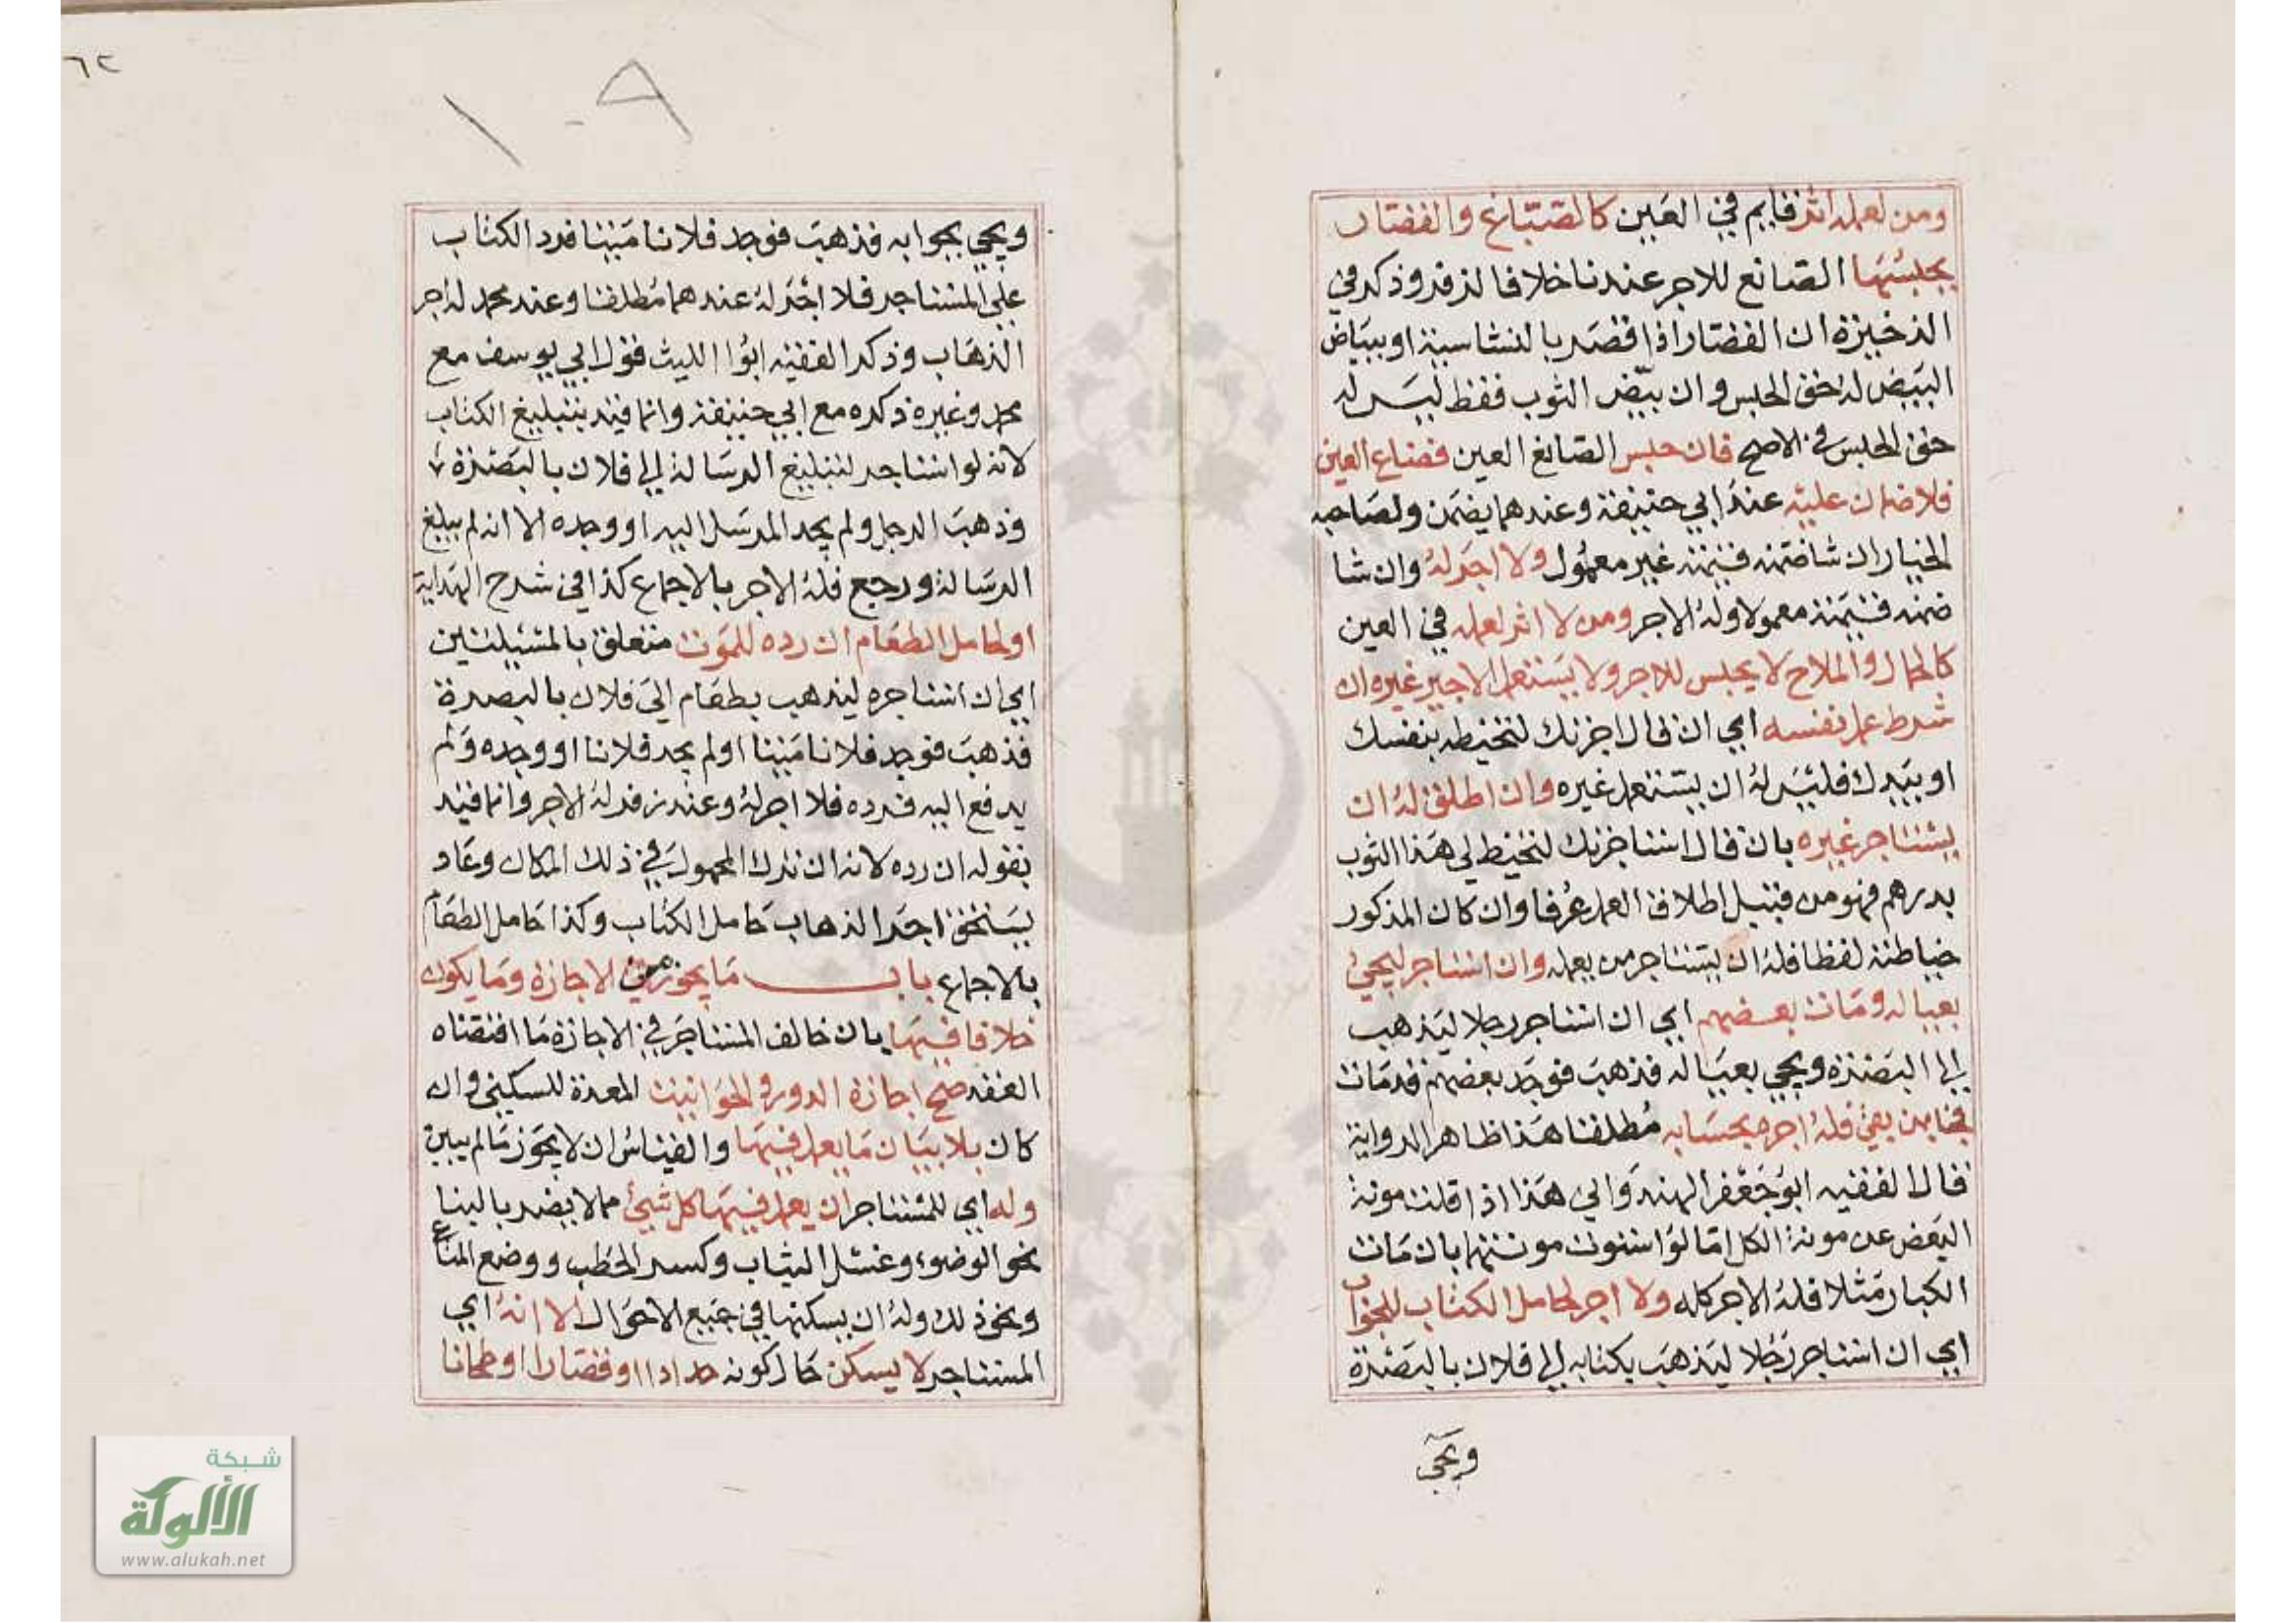 ومن لعمله اثر قايم في العين كالصباغ والقصار
يحبسها الصانع للاجر عندنا خلافا لزفر وذكر في
الذخيرة ان القصار اذا قصر بالنشاستة او ببياض
البيض له حق الحبس وان بيّض الثوب فقط ليس له
حق الحبس في الاصح فان حبس الصانع العين فضاع العين
فلا ضمان عليه عند ابي حنيفة وعندهما يضمن ولصاحبه
الخيار ان شا ضمنه قيمته غير معمول ولا اجر له وان شا
ضمنه قيمته معمولا وله الاجر ومن لا اثر لعمله في العين
كالحمال والملاح لا يحبس للاجر ولا يستعمل الاجير غيره ان
شرط عمل نفسه اي ان قال اجرتك لتخيطه بنفسك
او بيدك فليس له ان يستعمل غيره وان اطلق له ان
يستاجر غيره بان قال استاجرتك لتخيط لي هذا الثوب
بدرهم فهو من قبيل اطلاق العمل عرفا وان كان المذكور
خياطته لفظا فله ان يستاجر من يعمله وان استاجر ليجئ
بعياله ومات بعضهم اي ان استاجر رجلا ليذهب
الى البصرة ويجي بعياله فذهب فوجد بعضهم قد مات
فجا بمن بقي فله اجره بحسابه مطلقا هذا ظاهر الرواية
قال الفقيه ابو جعفر الهندواني هذا اذا قلت مونة
البعض عن مونة الكل اما لو استوت مونتهما بان مات
الكبار مثلا فله الاجر كله ولا اجر لحامل الكتاب للجواب
اي ان استاجر رجلا ليذهب بكتابه الى فلان بالبصرة
ويجي
٦٢
١٠٩
ويجي بجوابه فذهب فوجد فلانا ميتا فرد الكتاب
على المستاجر فلا اجر له عندهما مطلقا وعند محمد له اجر
الذهاب وذكر الفقيه ابو الليث قول ابي يوسف مع
محمد وغيره ذكره مع ابي حنيفة وانما قيد بتبليغ الكتاب
لانه لو استاجر لتبليغ الرسالة الى فلان بالبصرة
وذهب الرجل ولم يجد المرسل اليه او وجده الا انه لم يبلغ
الرسالة ورجع فله الاجر بالاجماع كذا في شرح الهداية
او لحامل الطعام ان رده للموت متعلق بالمسيلتين
اي ان استاجره ليذهب بطعام الى فلان بالبصرة
فذهب فوجد فلانا ميتا او لم يجد فلانا او وجده ولم
يدفع اليه فرده فلا اجر له وعند زفر له الاجر وانما قيد
بقوله ان رده لانه ان ترك المحمول في ذلك المكان وعاد
يستحق اجر الذهاب حامل الكتاب وكذا حامل الطعام
بالاجماع باب ما يجوز من الاجارة وما يكون
خلافا فيها بان خالف المستاجر في الاجارة ما اقتضاه
العقد صح اجارة الدور والحوانيت المعدة للسكنى وان
كان بلا بيان ما يعمل فيها والقياس ان لا يجوز ما لم يبين
وله اي للمستاجر ان يعمل فيها كل شيئ مما لا يضر بالبنا
نحو الوضوء وغسل الثياب وكسر الحطب ووضع المتاع
ونحو ذلك وله ان يسكنها في جميع الاحوال الا انه اي
المستاجر لا يسكن حال كونه حدادا او قصارا او طحانا
شبكة
الألوكة
www.alukah.net